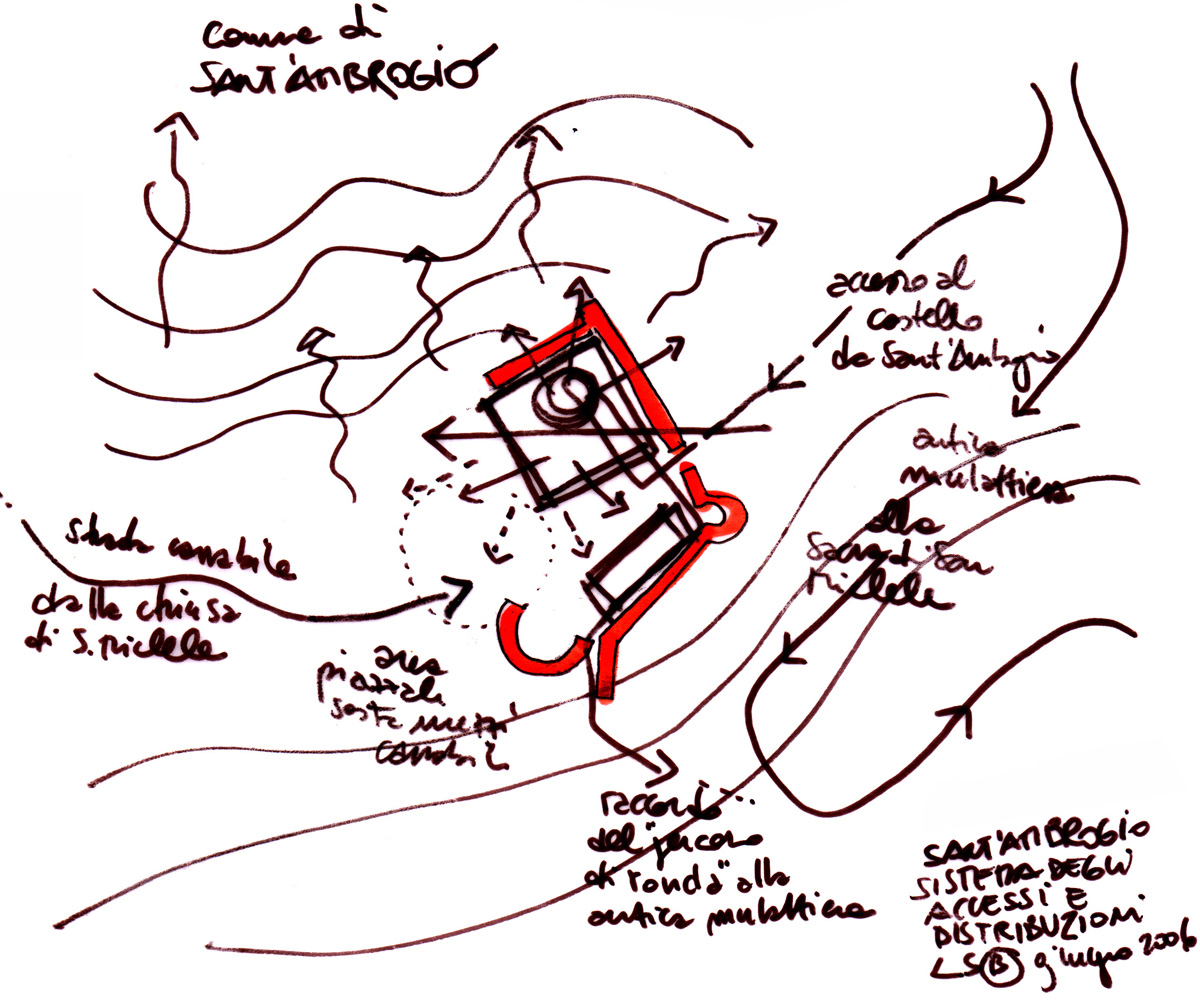 comune di
SANT'AMBROGIO
accesso al
castello
da Sant'Ambrogio
antica
mulattiera
alla
Sacra di San
Michele
strada carrabile
dalla chiusa
di S. Michele
area
piazzale
sosta mezzi
carrabili
raccordo
del "percorso
di ronda" alla
antica mulattiera
SANT'AMBROGIO
SISTEMA DEGLI
ACCESSI E
DISTRIBUZIONI
LSB giugno 2006